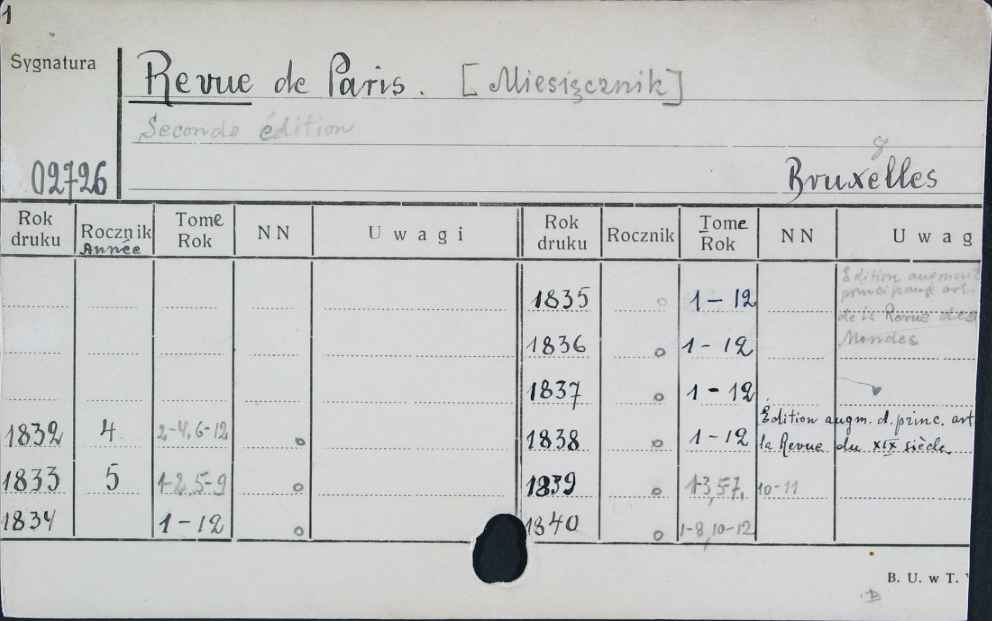 1
Sygnatura
Revue de Paris. [Miesięcznik]
Seconde édition
02726
8
Bruxelles
Rok druku Rocznik Année Tome Rok NN Uwagi Rok druku Rocznik Tome Rok NN Uwag
1835 o 1-12 Edition augment
principaux art.
de la Revue des
1836 o 1-12 Mondes
1837 o 1-12
1832 4 2-4, 6-12 o 1838 o 1-12 Edition augm. d. princ. art
la Revue du XIX siècle.
1833 5 1-2, 5-9 o 1839 o 1-3, 5-7, 10-11
1834 1-12 o 1840 o 1-8, 10-12
B. U. w T.